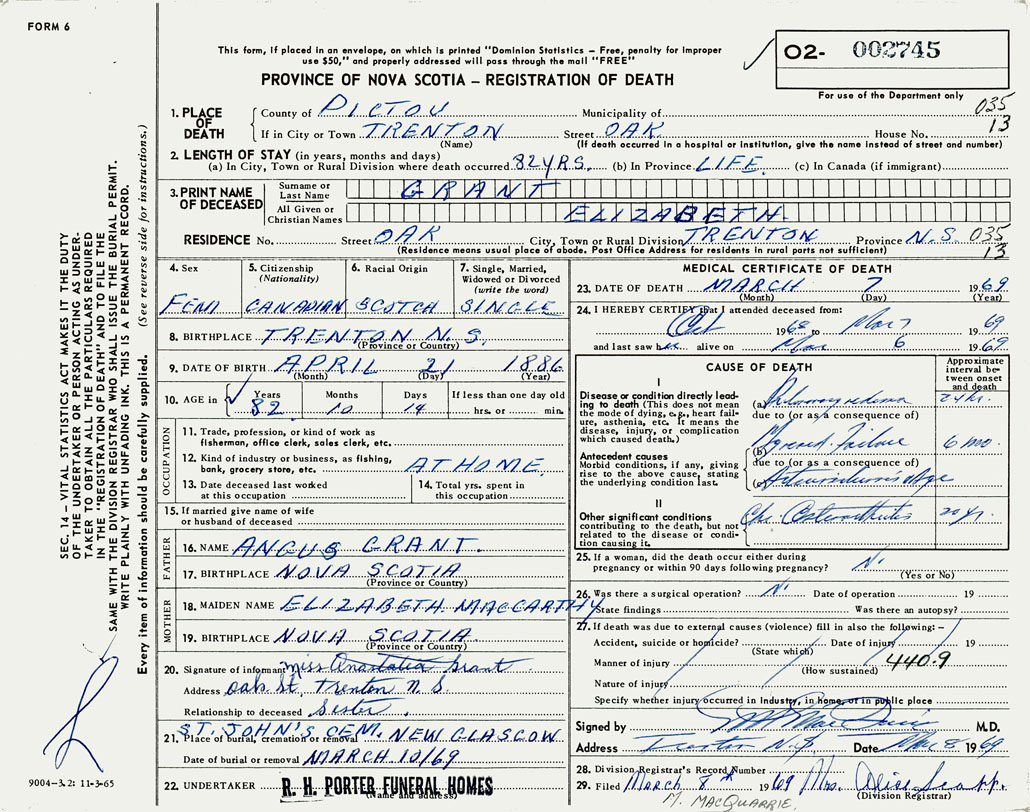 FORM 6
This form, if placed in an envelope, on which is printed "Dominion Statistics – Free, penalty for improper
use $50," and properly addressed will pass through the mail "FREE"
O2- 002745
PROVINCE OF NOVA SCOTIA – REGISTRATION OF DEATH
For use of the Department only
035
13
1. PLACE OF DEATH
County of PICTOU Municipality of
If in City or Town TRENTON Street OAK House No.
(Name) (If death occurred in a hospital or institution, give the name instead of street and number)
2. LENGTH OF STAY (in years, months and days)
(a) In City, Town or Rural Division where death occurred 82 YRS. (b) In Province LIFE. (c) In Canada (if immigrant)
3. PRINT NAME OF DECEASED
Surname or Last Name GRANT
All Given or Christian Names ELIZABETH
RESIDENCE No. Street OAK City, Town or Rural Division TRENTON Province N.S. 035
(Residence means usual place of abode. Post Office Address for residents in rural parts not sufficient) 13
4. Sex FEM
5. Citizenship (Nationality) CANADIAN
6. Racial Origin SCOTCH
7. Single, Married, Widowed or Divorced (write the word) SINGLE
8. BIRTHPLACE TRENTON N.S.
(Province or Country)
9. DATE OF BIRTH APRIL 21 1886
(Month) (Day) (Year)
10. AGE in Years 82 Months 10 Days 14 If less than one day old hrs. or min.
OCCUPATION
11. Trade, profession, or kind of work as
fisherman, office clerk, sales clerk, etc.
12. Kind of industry or business, as fishing,
bank, grocery store, etc. AT HOME
13. Date deceased last worked
at this occupation
14. Total yrs. spent in
this occupation
15. If married give name of wife
or husband of deceased
FATHER
16. NAME ANGUS GRANT.
17. BIRTHPLACE NOVA SCOTIA
(Province or Country)
MOTHER
18. MAIDEN NAME ELIZABETH MACCARTHY
19. BIRTHPLACE NOVA SCOTIA
(Province or Country)
20. Signature of informant Miss Anastatia Grant
Address Oak St, Trenton N.S.
Relationship to deceased Sister.
21. ST. JOHN'S CEM. NEW GLASGOW
Place of burial, cremation or removal
Date of burial or removal MARCH 10/69
22. UNDERTAKER R. H. PORTER FUNERAL HOMES
(Name and address)
MEDICAL CERTIFICATE OF DEATH
23. DATE OF DEATH MARCH 7 1969
(Month) (Day) (Year)
24. I HEREBY CERTIFY that I attended deceased from:
Oct 1968 to Mar 7 1969
and last saw her alive on Mar 6 1969
CAUSE OF DEATH
Approximate interval between onset and death
I
Disease or condition directly leading to death (This does not mean the mode of dying, e.g., heart failure, asthenia, etc. It means the disease, injury, or complication which caused death.)
(a) 24 hr.
due to (or as a consequence of)
Antecedent causes
Morbid conditions, if any, giving rise to the above cause, stating the underlying condition last.
(b) Failure 6 mo.
due to (or as a consequence of)
(c)
II
Other significant conditions
contributing to the death, but not related to the disease or condition causing it.
Chr. Osteoarthritis 20 yr.
25. If a woman, did the death occur either during
pregnancy or within 90 days following pregnancy?
(Yes or No)
26. Was there a surgical operation? Date of operation 19
State findings Was there an autopsy?
27. If death was due to external causes (violence) fill in also the following: –
Accident, suicide or homicide? Date of injury 19
(State which)
Manner of injury 440.9
(How sustained)
Nature of injury
Specify whether injury occurred in industry, in home, or in public place
Signed by M.D.
Address Trenton N.S. Date Mar 8 1969
28. Division Registrar's Record Number
29. Filed March 8th 1969 Mrs. Alice
(Division Registrar)
M. MACQUARRIE.
SEC. 14 – VITAL STATISTICS ACT MAKES IT THE DUTY
OF THE UNDERTAKER OR PERSON ACTING AS UNDER-
TAKER TO OBTAIN ALL THE PARTICULARS REQUIRED
IN THE "REGISTRATION OF DEATH" AND TO FILE THE
SAME WITH THE DIVISION REGISTRAR WHO SHALL ISSUE THE BURIAL PERMIT.
WRITE PLAINLY WITH UNFADING INK. THIS IS A PERMANENT RECORD.
Every item of information should be carefully supplied. (See reverse side for instructions.)
9004-3.2: 11-3-65